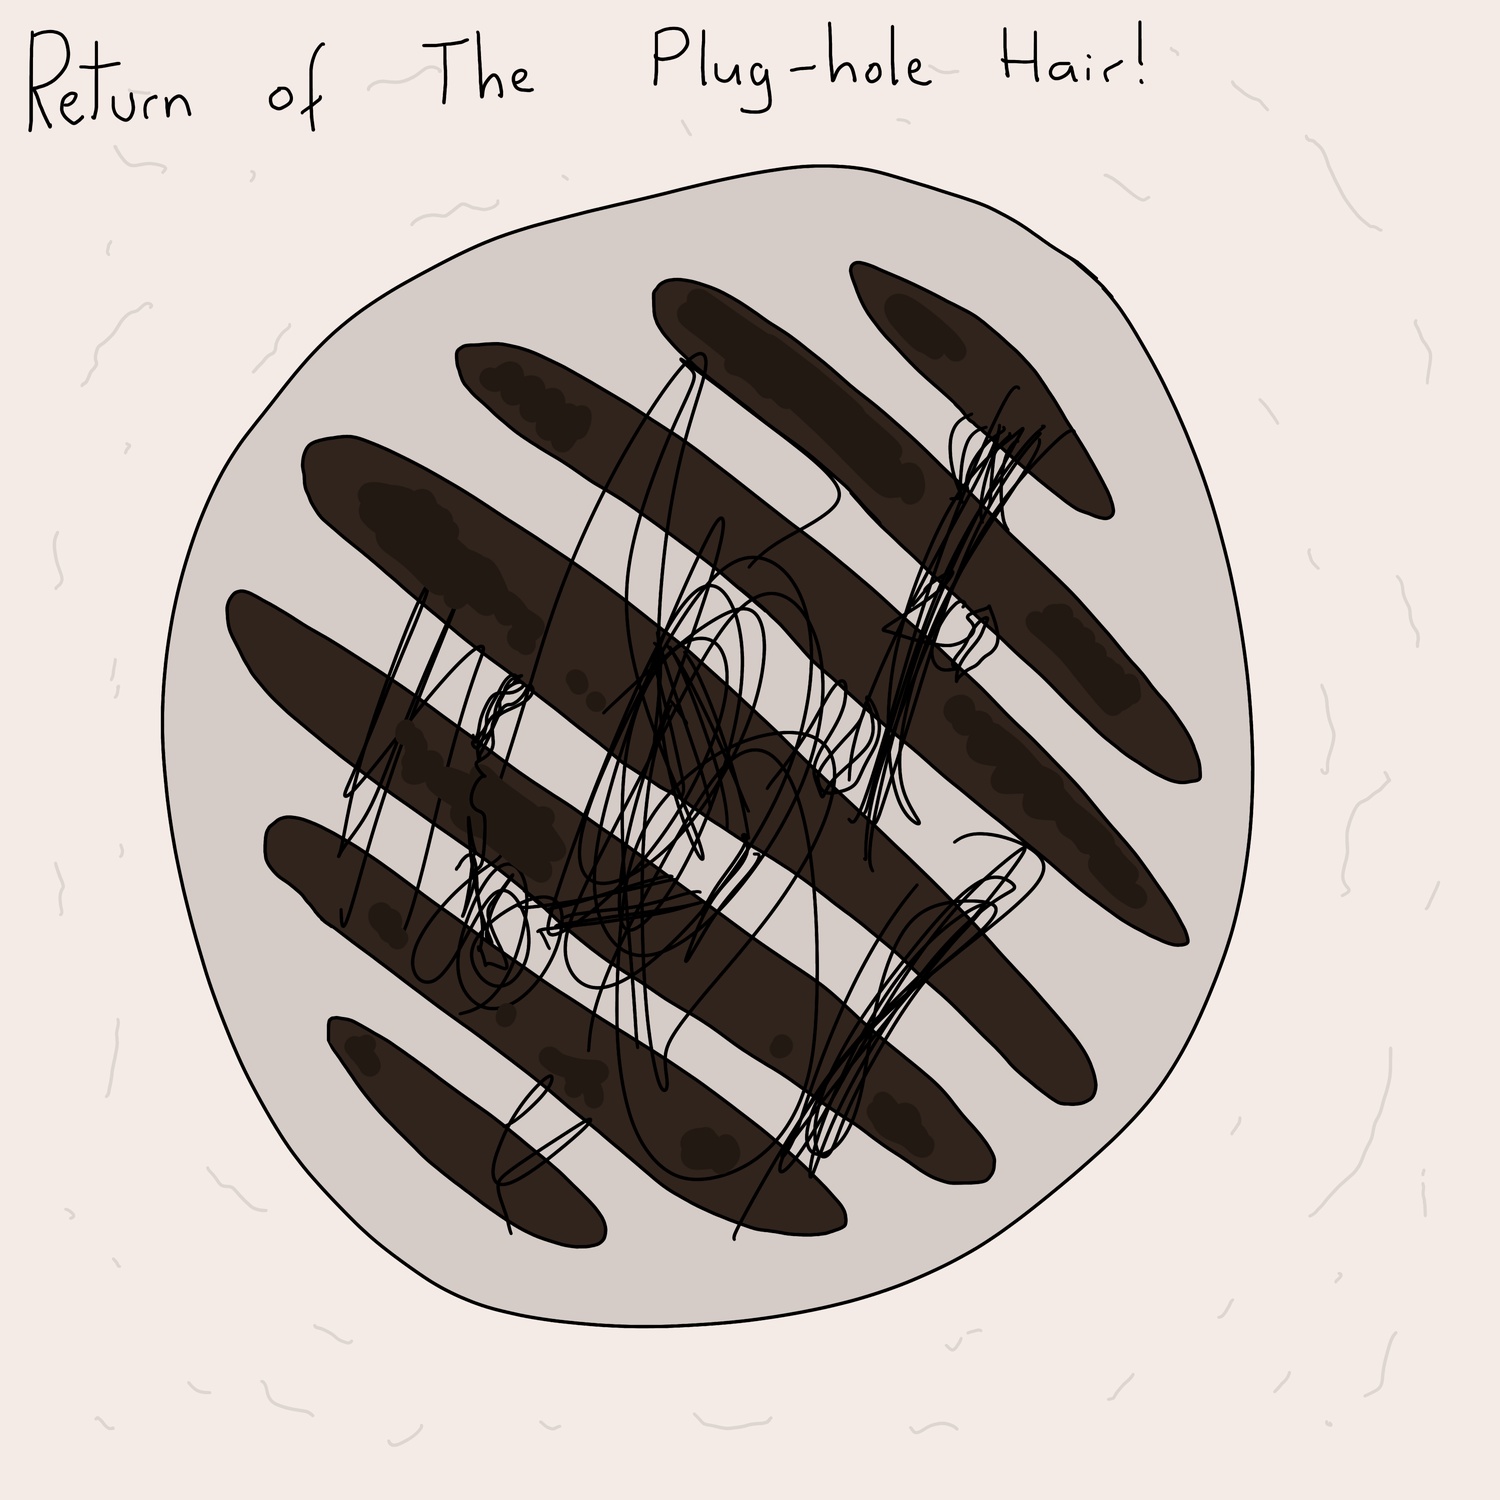 Return of The Plug-hole Hair!